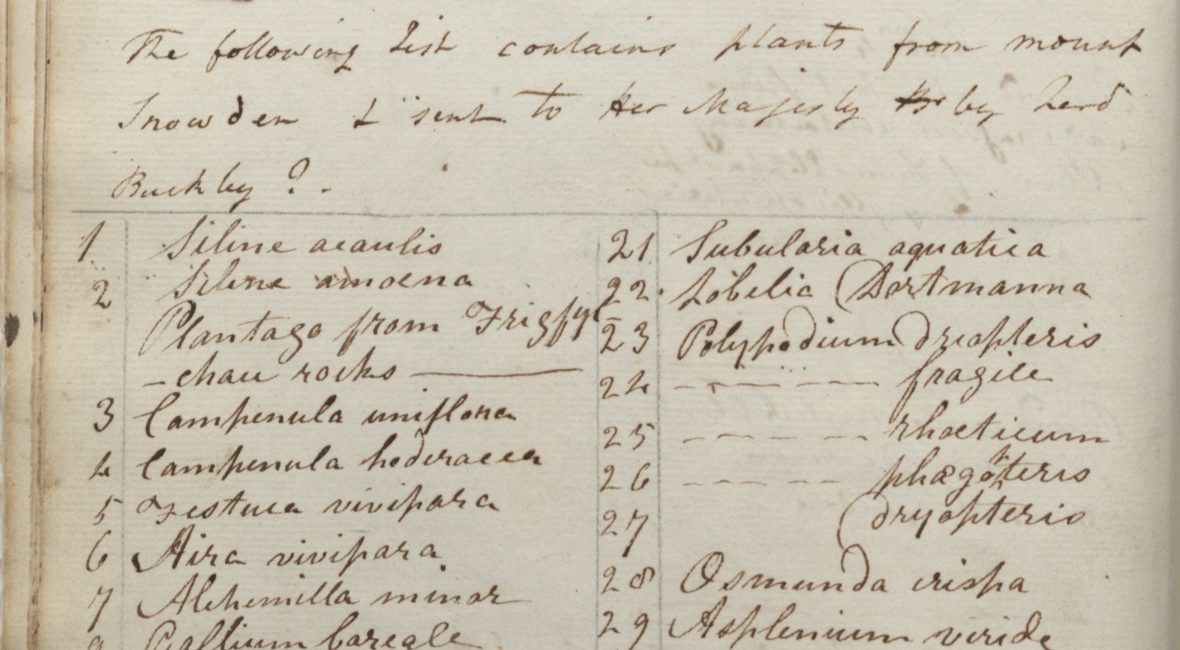 The following List contains plants from mount
Snowden & sent to Her Majesty by Lord
Buckby ? .
1 Siline acaulis
2 Silene amoena
Plantago from
-chau rocks
3 Campenula uniflora
4 Campenula hederacea
5 Festuca vivipara
6 Aira vivipara
7 Alchemilla minor
Gallium boreale
21 Subularia aquatica
22. Lobelia Dortmanna
23 Polypodium dryopteris
24 -------- fragile
25 -------- rhaeticum
26 -------- phægopteris
27 dryopteris
28 Osmunda crispa
29 Asplenium viride